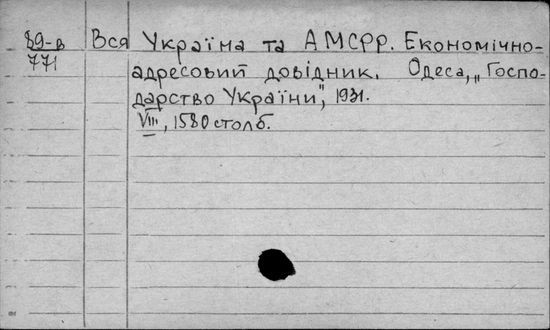 89-в Вся Україна та АМСРР. Економічно-
771 адресовий довідник. Одеса, „Госпо-
дарство України", 1931.
VIII, 1580 столб.